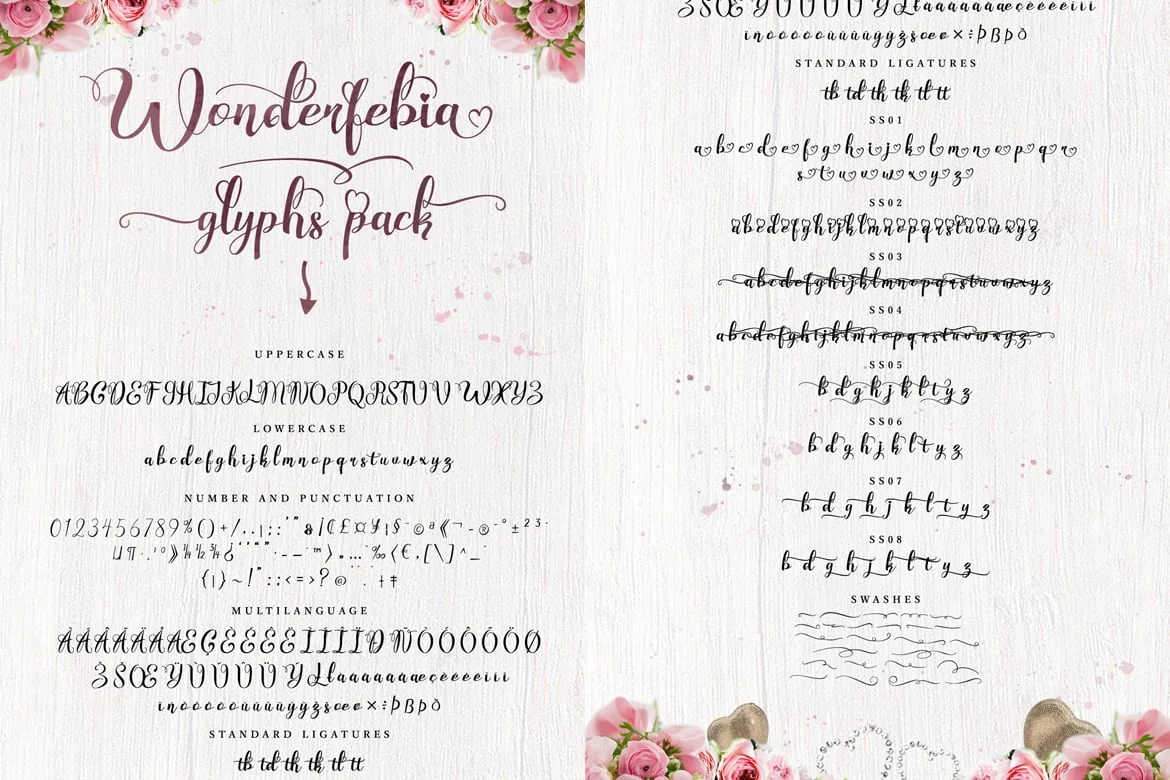 Wonderfebia
glyphs pack
UPPERCASE
ABCDEFGHIJKLMNOPQRSTUVWXYZ
LOWERCASE
abcdefghijklmnopqrstuvwxyz
NUMBER AND PUNCTUATION
0123456789%()+/
{|}~!":;<=>?@
MULTILANGUAGE
ÀÁÂÃÄÅÆÇÈÉÊËÌÍÎÏÐÑÒÓÔÕÖØ
ŠŒÙÚÛÜÝ
×÷ÞßÞð
STANDARD LIGATURES
tb td th tk tl tt
×÷ÞßÞð
STANDARD LIGATURES
tb td th tk tl tt
SS01
a b c d e f g h i j k l m n o p q r
s t u v w x y z
SS02
abcdefghijklmnopqrstuvwxyz
SS03
abcdefghijklmnopqrstuvwxyz
SS04
abcdefghijklmnopqrstuvwxyz
SS05
b d g h j k l t y z
SS06
b d g h j k l t y z
SS07
b d g h j k l t y z
SS08
b d g h j k l t y z
SWASHES